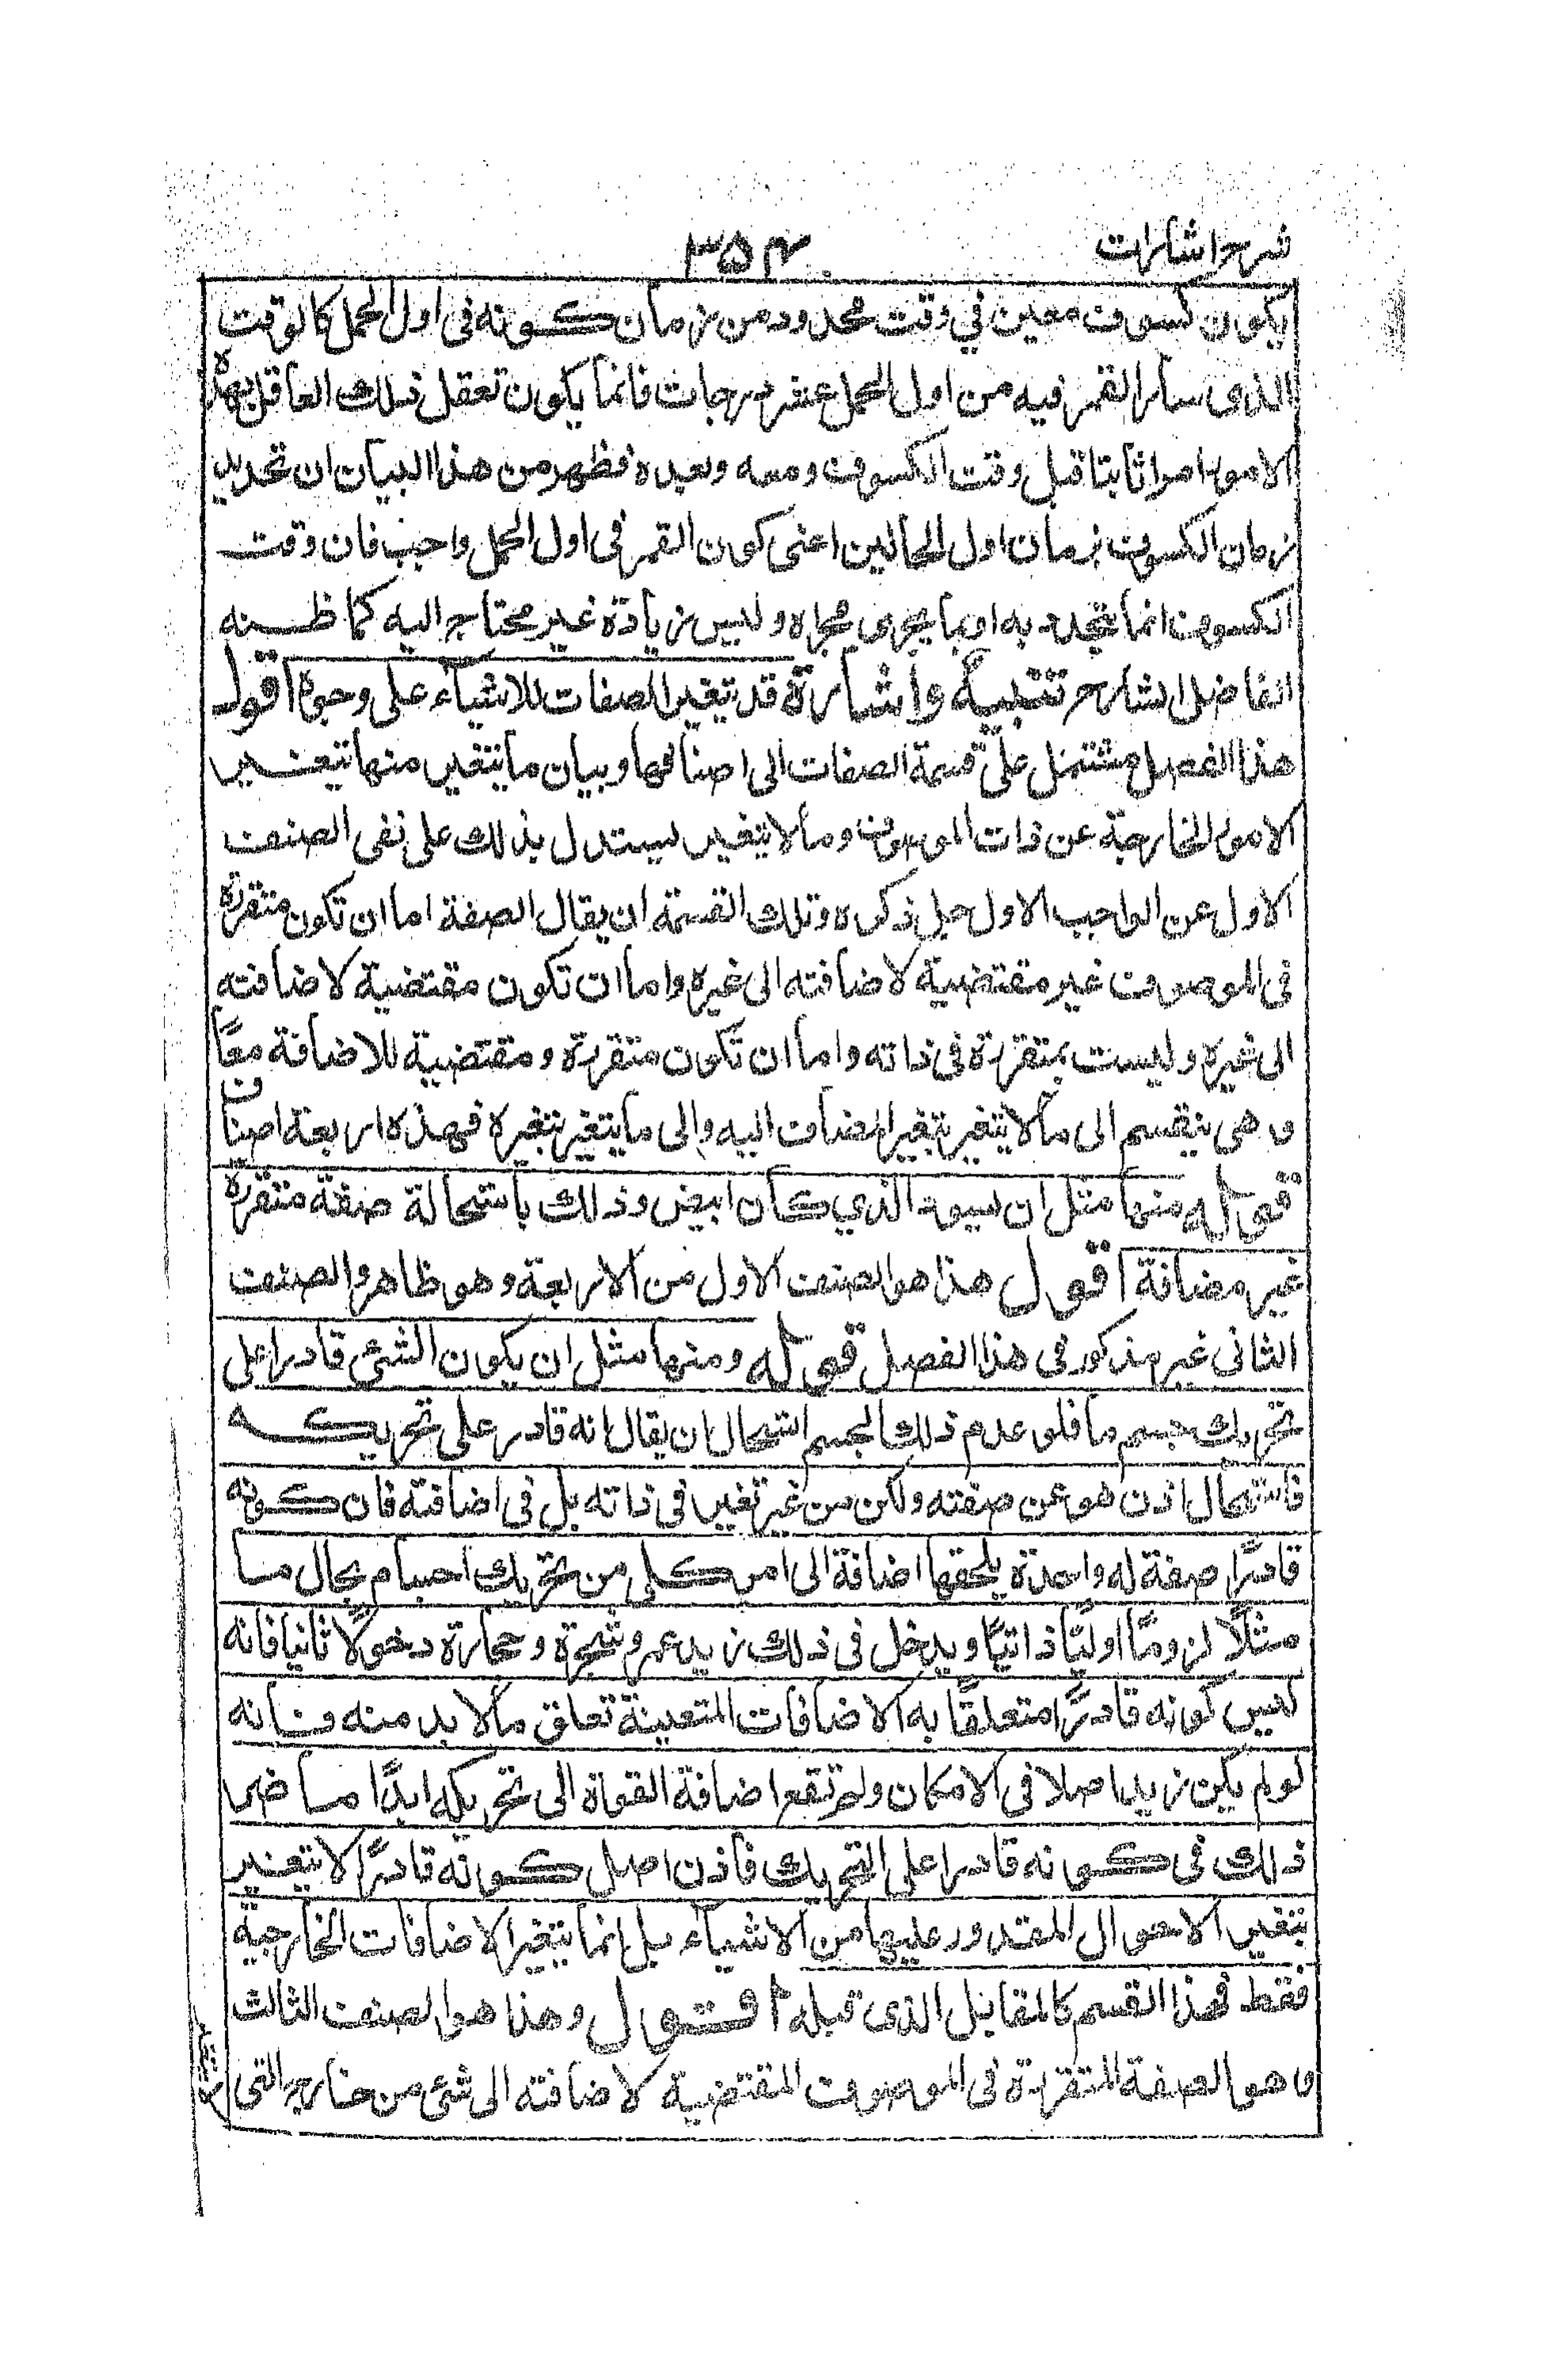 شرح اشارات
۳۵۴
يكون كسوف معين في وقت محدود من زمان كونه فى اول الحمل كالوقت
الذى سار القمر فيه من اول الحمل عشر درجات فانما يكون تعقل ذلك العاقل بهذه
الامور امرا ثابتا قبل وقت الكسوف ومعه وبعده فظهر من هذا البيان ان تحديد
زمان الكسوف بزمان اول الحالين اعنى كون القمر فى اول الحمل واجب فان وقت
الكسوف انما يتحدد به او بما يجرى مجراه وليس زيادة غير محتاج اليه كما ظنه
الفاضل الشارح تنبيه وإشارة قد يتغير الصفات للاشياء على وجوه اقول
هذا الفصل مشتمل على قسمة الصفات الى اصنافها وبيان ما يتغير منها بتغير
الامور الخارجية عن ذات الموصوف وما لا يتغير ليستدل بذلك على نفى الصنف
الاول عن الواجب الاول جل ذكره وتلك القسمة ان يقال الصفة اما ان تكون متقررة
فى الموصوف غير مقتضية لاضافته الى غيره واما ان تكون مقتضية لاضافته
الى غيره وليست بمتقررة فى ذاته واما ان تكون متقررة ومقتضية للاضافة معًا
وهى ينقسم الى ما لا يتغير بتغير المضاف اليه والى ما يتغير بتغيره فهذه اربعة اصناف
قوله منها مثل ان يسود الذي كان ابيض وذلك باستحالة صفة متقررة
غير مضافة اقول هذا هو الصنف الاول من الاربعة وهو ظاهر والصنف
الثانى غير مذكور فى هذا الفصل قوله ومنها مثل ان يكون الشئ قادرا على
تحريك جسم ما فلو عدم ذلك الجسم استحال ان يقال انه قادر على تحريكه
فاستحال اذن هو عن صفته ولكن من غير تغير فى ذاته بل فى اضافته فان كونه
قادرًا صفة له واحدة يلحقها اضافة الى امر كلى من تحريك اجسام بحال ما
مثلًا لزومًا اوليًا ذاتيًا ويدخل فى ذلك زيد وعمرو وشجرة وحجارة دخولًا ثانيا فانه
ليس كونه قادرًا متعلقًا به الاضافات المتعينة تعلق ما لا بد منه فانه
لو لم يكن زيد اصلا فى الامكان ولم تقع اضافة القوة الى تحريكه ابدًا ما ضر
ذلك فى كونه قادرا على التحريك فاذن اصل كونه قادرًا لا يتغير
بتغير الاحوال المقدور عليها من الاشياء بل انما يتغير الاضافات الخارجية
فقط فهذا القسم كالمقابل الذى قبله اقول وهذا هو الصنف الثالث
وهو الصفة المتقررة فى الموصوف المقتضية لاضافته الى شئ من خارج التى